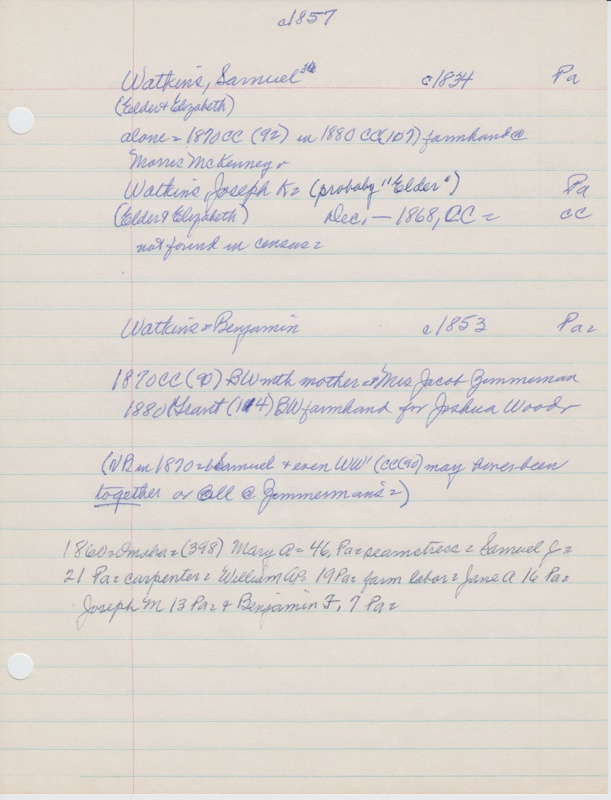 c1857
Watkins, Samuel c1834 Pa
(Elder & Elizabeth)
alone = 1870 CC (92) in 1880 CC (107) farmhand @
Morris McKenney
Watkins, Joseph K = (probaby "Elder") Pa
(Elder & Elizabeth) Dec. — 1868, CC = CC
not found in census =
Watkins Benjamin c1853 Pa =
1870 CC (90) BW with mother Mrs Jacob Zimmerman
1880 Grant (114) BW farmhand for Joshua Woods
(NB in 1870 = Samuel & even WW (CC (90) may have been
together or all @ Zimmerman's =)
1860 = Omaha = (398) Mary A = 46, Pa = seamstress = Samuel J =
21 Pa = carpenter = William 19 Pa = farm labor = Jane A 16 Pa =
Joseph M 13 Pa = & Benjamin F, 7 Pa =